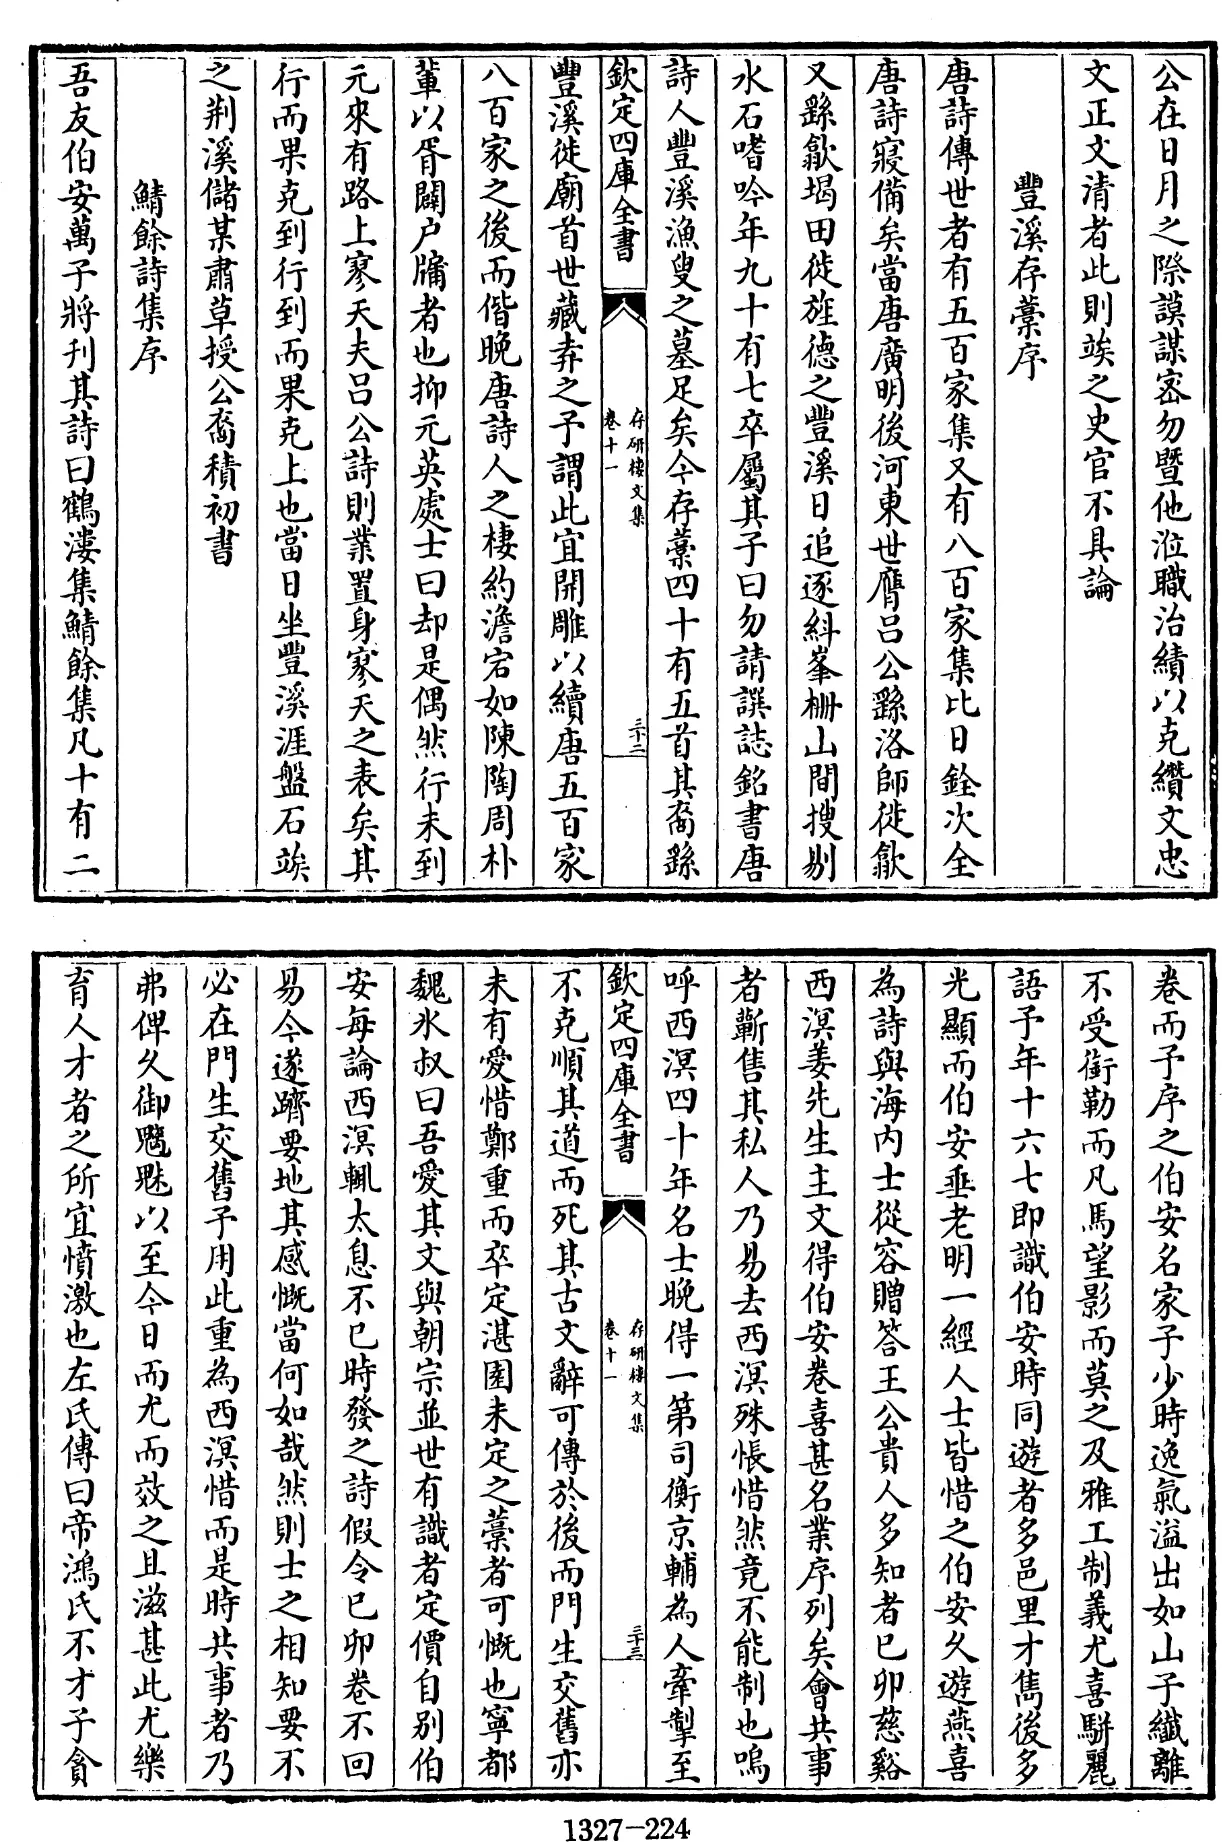 公在日月之際謨謀宻勿暨他涖職治績以克纘文忠
文正文清者此則竢之史官不具論
豐溪存藁序
唐詩傳世者有五百家集又有八百家集比日銓次全
唐詩寖備矣當唐廣明後河東世膺呂公繇洛師徙歙
又繇歙堨田徙旌德之豐溪日追逐紏峯柵山間搜剔
水石嗜吟年九十有七卒屬其子曰勿請譔誌銘書唐
詩人豐溪漁叟之墓足矣今存藁四十有五首其裔繇
欽定四庫全書
存研樓文集
卷十一
三十二
豐溪徙廟首世藏弆之予謂此宜開雕以續唐五百家
八百家之後而偕晚唐詩人之棲約澹宕如陳陶周朴
輩以胥闢户牖者也抑元英處士曰却是偶然行未到
元來有路上寥天夫呂公詩則業置身寥天之表矣其
行而果克到行到而果克上也當日坐豐溪涯盤石竢
之荆溪儲某肅草授公裔積初書
鯖餘詩集序
吾友伯安萬子將刋其詩曰鶴漊集鯖餘集凡十有二
卷而予序之伯安名家子少時逸氣溢出如山子纖離
不受銜勒而凡馬望影而莫之及雅工制義尤喜駢麗
語予年十六七即識伯安時同遊者多邑里才雋後多
光顯而伯安垂老明一經人士皆惜之伯安久遊燕喜
為詩與海内士從容贈答王公貴人多知者己卯慈谿
西溟姜先生主文得伯安卷喜甚名業序列矣會共事
者蘄售其私人乃易去西溟殊悵惜然竟不能制也嗚
呼西溟四十年名士晚得一第司衡京輔為人牽掣至
欽定四庫全書
存研樓文集
卷十一
三十三
不克順其道而死其古文辭可傳於後而門生交舊亦
未有愛惜鄭重而卒定湛園未定之藁者可慨也寧都
魏氷叔曰吾愛其文與朝宗並世有識者定價自别伯
安每論西溟輒太息不已時發之詩假令己卯卷不回
易今遂躋要地其感慨當何如哉然則士之相知要不
必在門生交舊予用此重為西溟惜而是時共事者乃
弗俾久御魑魅以至今日而尤而效之且滋甚此尤樂
育人才者之所宜憤激也左氏傳曰帝鴻氏不才子貪
1327-224